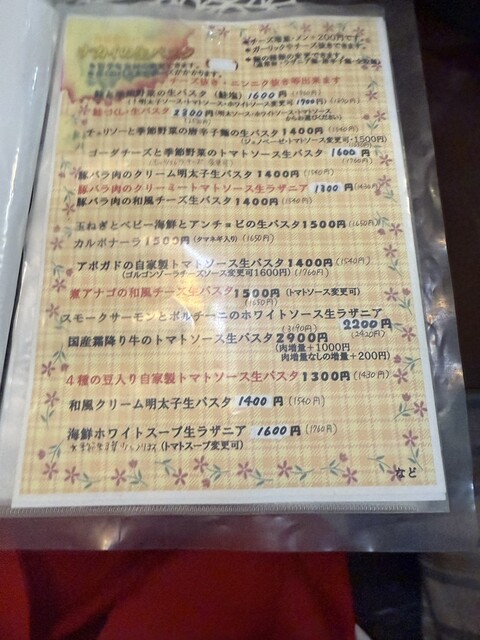 ※チーズ増量・メン+200円です。
※ガーリックやチーズ抜きできます。
※麺の種類の変更できます。
チーズ抜き・ニンニク抜き等出来ます
鮭と季節野菜の生パスタ(鮭塩)1600円(1760円)
(明太子ソース・トマトソース・ホワイトソース変更可 1700円)(1870円)
生パスタ 2300円(明太子ソース・ホワイトソース・トマトソースからお選びください)
チョリソーと季節野菜の唐辛子麺の生パスタ1400円(1540円)
(ジェノベーゼ・トマトソース変更可・1500円)
ゴーダチーズと季節野菜のトマトソース生パスタ 1600円(1760円)
豚バラ肉のクリーム明太子生パスタ1400円(1540円)
豚バラ肉のクリーミートマトソース生ラザニア 1300円(1430円)
豚バラ肉の和風チーズ生パスタ1400円(1540円)
玉ねぎとベビー海鮮とアンチョビの生パスタ1500円(1650円)
カルボナーラ1500円(タマネギ入り)(1650円)
アボガドの自家製トマトソース生パスタ1400円(1540円)
(ゴルゴンゾーラチーズソース変更可1600円)(1760円)
煮アナゴの和風チーズ生パスタ1500円(トマトソース変更可)
(1650円)
スモークサーモンとポルチーニのホワイトソース生ラザニア
2200円(2420円)
(3190円)
国産霜降り牛のトマトソース生パスタ2900円
(肉増量+1000円
肉増量なしの増量+200円)
4種の豆入り自家製トマトソース生パスタ1300円(1430円)
和風クリーム明太子生パスタ 1400円(1540円)
海鮮ホワイトスープ生ラザニア 1600円(1760円)
(トマトスープ変更可)
など